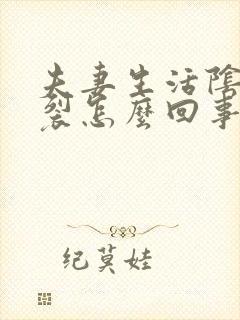 夫妻生活陰
裂怎麼回事
纪莫娃